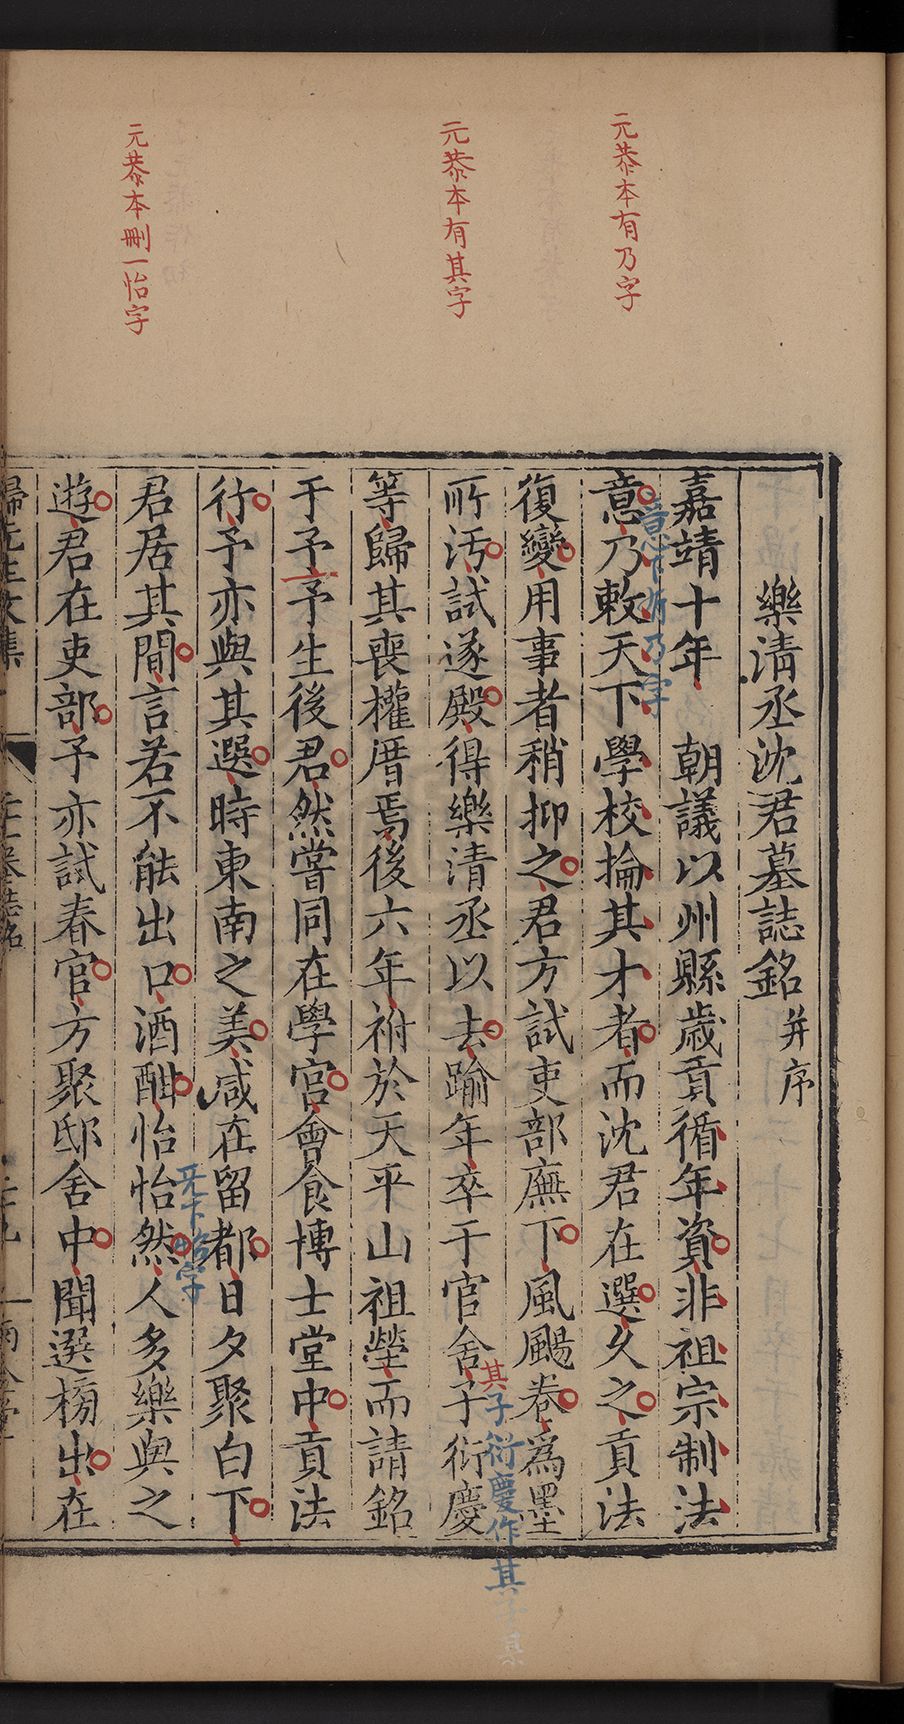 元恭本有乃字
元恭本有其字
元恭本刪一怡字
樂清丞沈君墓誌銘 并序
嘉靖十年 朝議以州縣歲貢循年資非祖宗制法
意乃敕天下學校掄其才者而沈君在選久之貢法
復變用事者稍抑之君方試吏部廡下風颺卷為墨
所汚試遂殿得樂清丞以去踰年卒于官舍子衍慶
其
等歸其喪權厝焉後六年祔於天平山祖塋而請銘
于予予生後君然嘗同在學宮會食博士堂中貢法
行予亦與其選時東南之美咸在留都日夕聚白下
君居其間言若不能出口酒酣怡怡然人多樂與之
遊君在吏部予亦試春官方聚邸舍中聞選榜出在